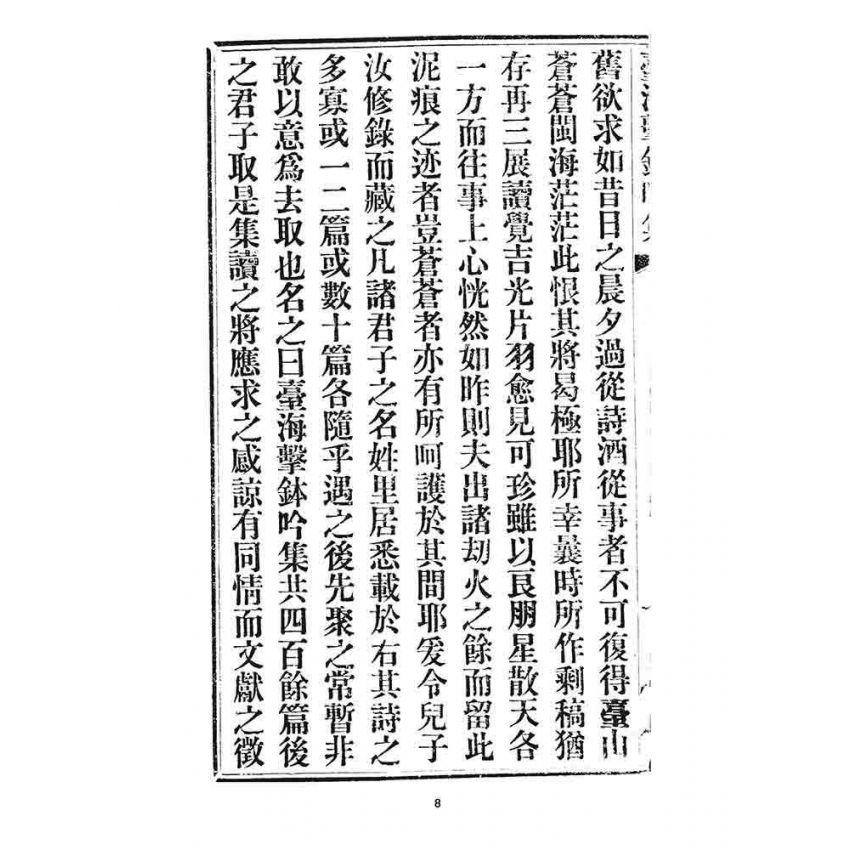 臺海擊鉢吟集
舊欲求如昔日之晨夕過從詩酒從事者不可復得臺山
蒼蒼閩海茫茫此恨其將曷極耶所幸曩時所作剩稿猶
存再三展讀覺吉光片羽愈見可珍雖以良朋星散天各
一方而往事上心恍然如昨則夫出諸劫火之餘而留此
泥痕之迹者豈蒼蒼者亦有所呵護於其間耶爰令兒子
汝修錄而藏之凡諸君子之名姓里居悉載於右其詩之
多寡或一二篇或數十篇各隨乎遇之後先聚之常暫非
敢以意爲去取也名之曰臺海擊鉢吟集共四百餘篇後
之君子取是集讀之將應求之感諒有同情而文獻之徵
8